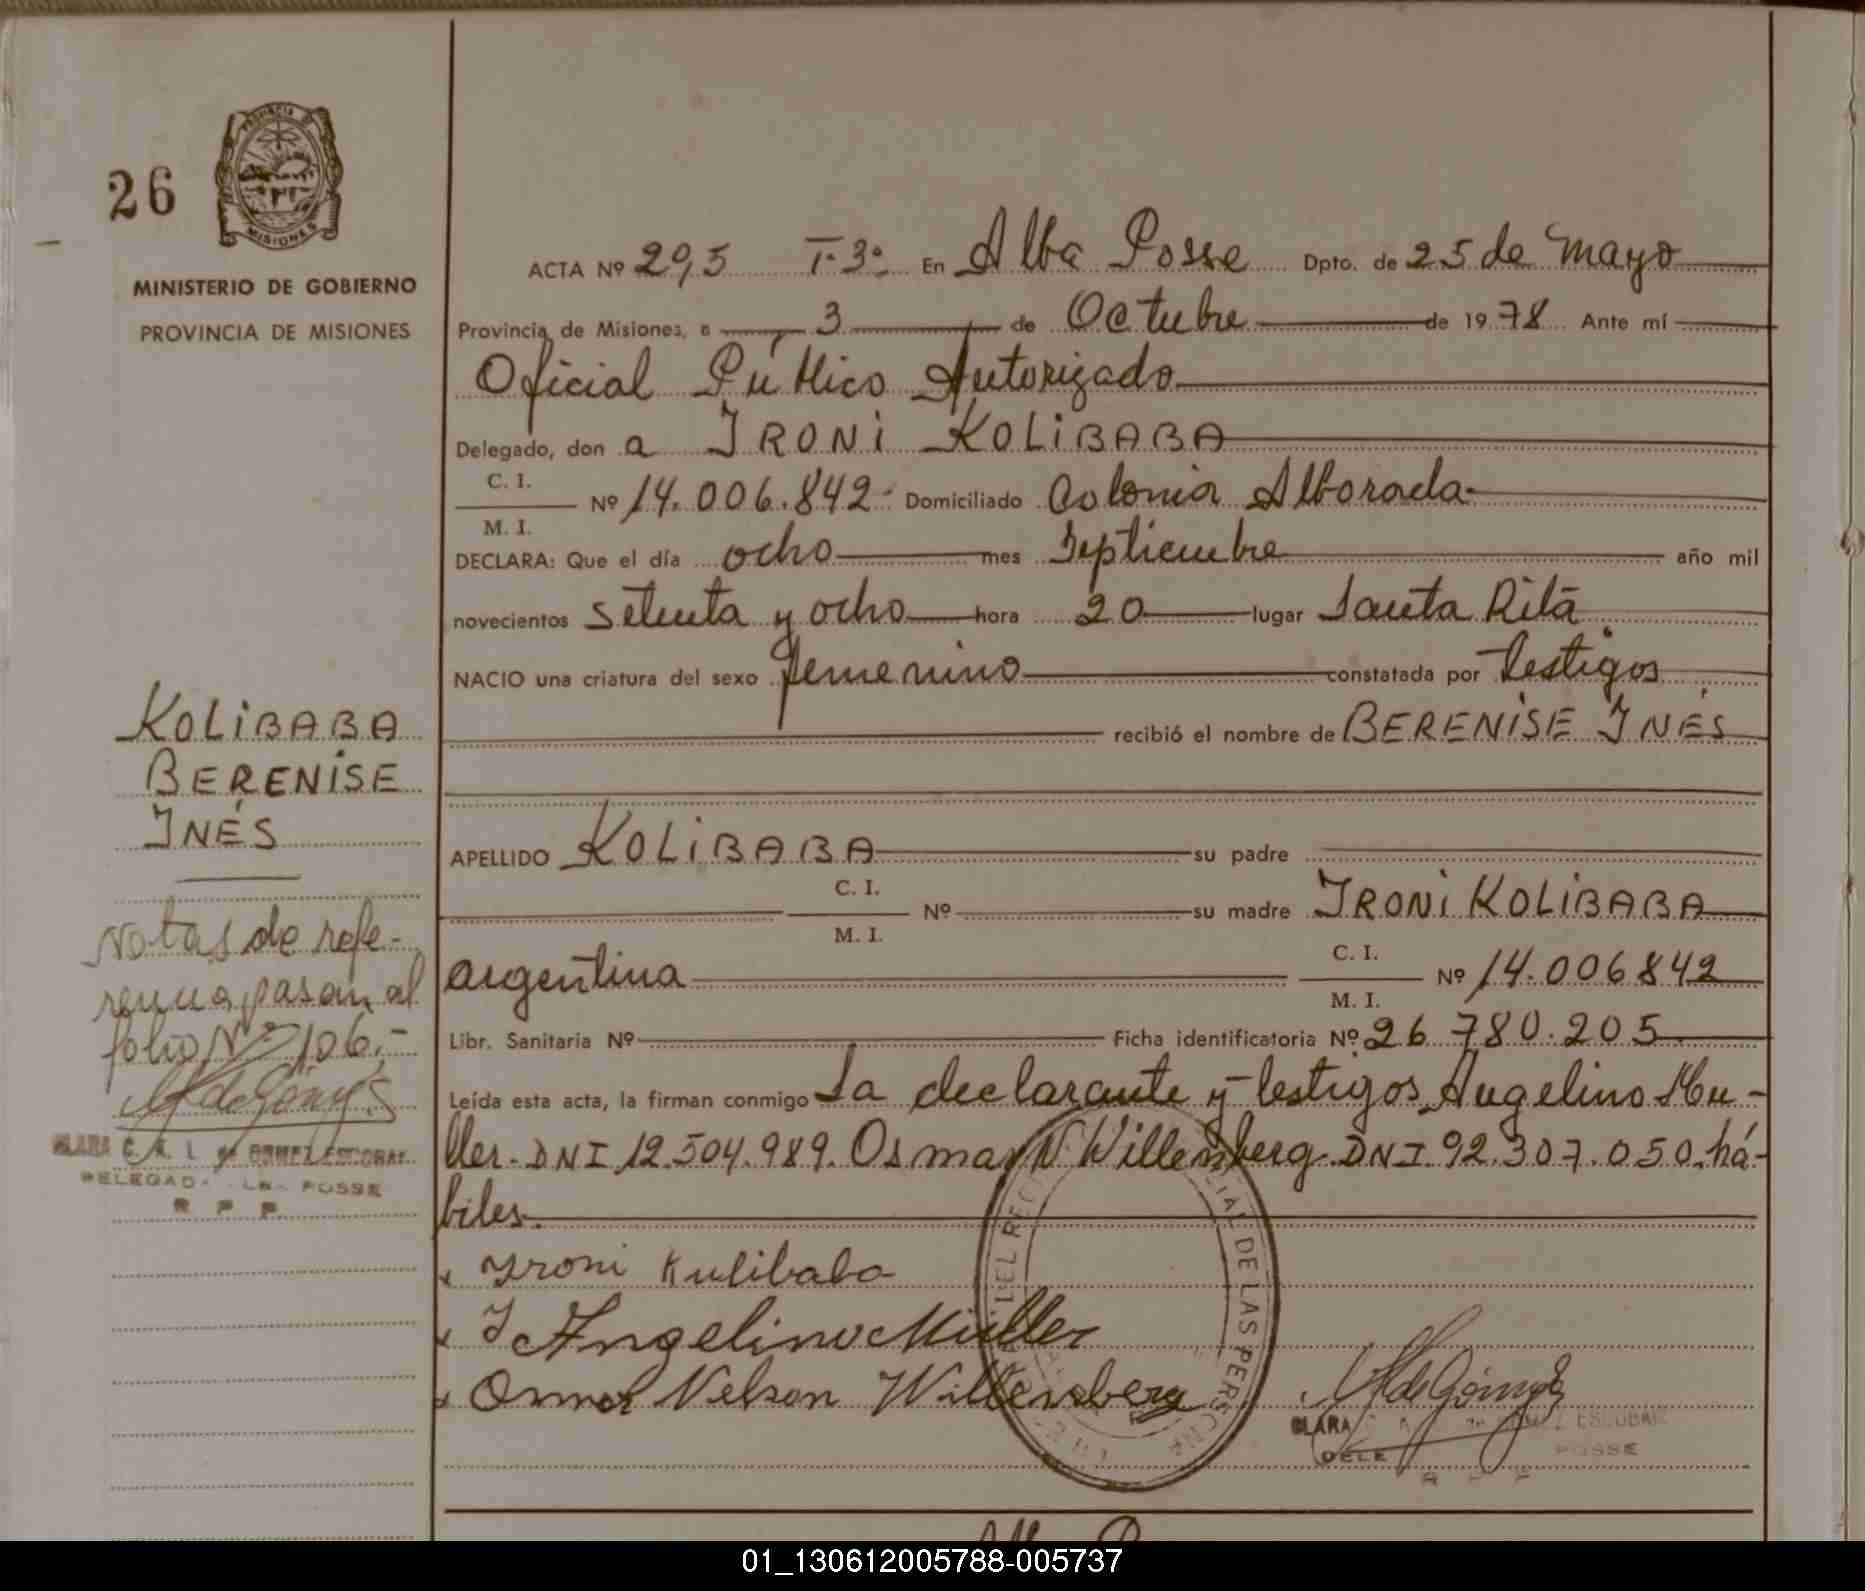 26
MISIONES
MINISTERIO DE GOBIERNO
PROVINCIA DE MISIONES
ACTA Nº 295 T. 3º En Alba Posse Dpto. de 25 de Mayo
Provincia de Misiones, a 3 de Octubre de 1978 Ante mí
Oficial Público Autorizado
Delegado, don a IRONI KOLIBABA
C. I.
Nº 14.006.842 Domiciliado Colonia Alborada
M. I.
DECLARA: Que el día ocho mes Septiembre año mil
novecientos setenta y ocho hora 20 lugar Santa Rita
NACIO una criatura del sexo femenino constatada por testigos
recibió el nombre de BERENISE INÉS
KOLIBABA
BERENISE
INÉS
APELLIDO KOLIBABA su padre
C. I.
Nº su madre IRONI KOLIBABA
M. I.
argentina C. I. Nº 14.006842
M. I.
Libr. Sanitaria Nº Ficha identificatoria Nº 26.780.205
Leída esta acta, la firman conmigo La declarante y testigos Angelino Mu-
ller. DNI 12.504.989. Osmar N. Willemberg. DNI. 92.307.050. há-
biles.
Notas de refe-
rencia pasan al
folio Nº 106.-
DELEGAD POSSE
R P P
Ironi Kulibaba
Angelino Müller
Osmar Nelson Willemberg
DE LAS PERSONA
CLARA ESCOBAR
DELE POSSE
01_130612005788-005737